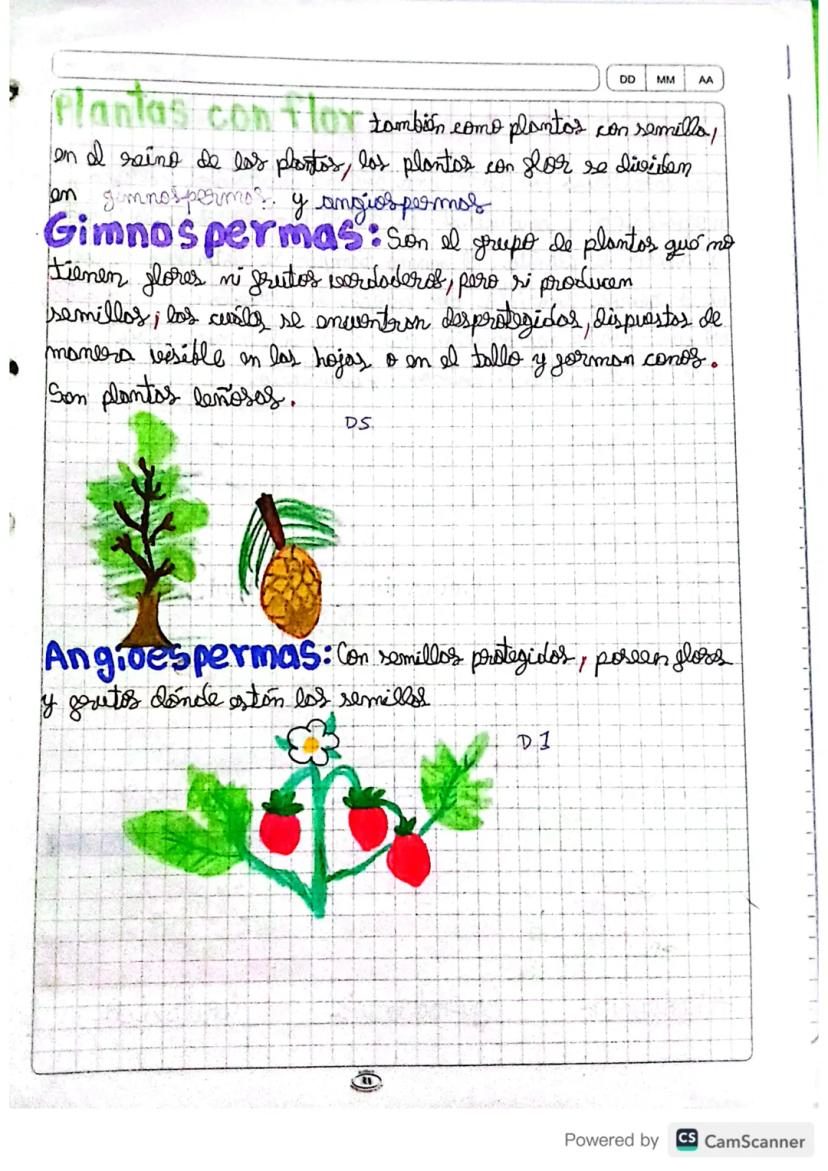 DD MM AA
Plantas con flor también como plantas con semilla,
en el reino de las plantas, las plantas con flor se dividen
en gimnospermas y angiospermas
Gimnospermas: Son el grupo de plantas que no
tienen flores ni frutos verdaderos, pero si producen
semillas, las cuáles se encuentran desprotegidas, dispuestas de
manera visible en las hojas o en el tallo y forman conos.
Son plantas leñosas.
D5
Angioespermas: Con semillas protegidas, poseen flores
y frutos dónde están las semillas
D1
Powered by CS CamScanner